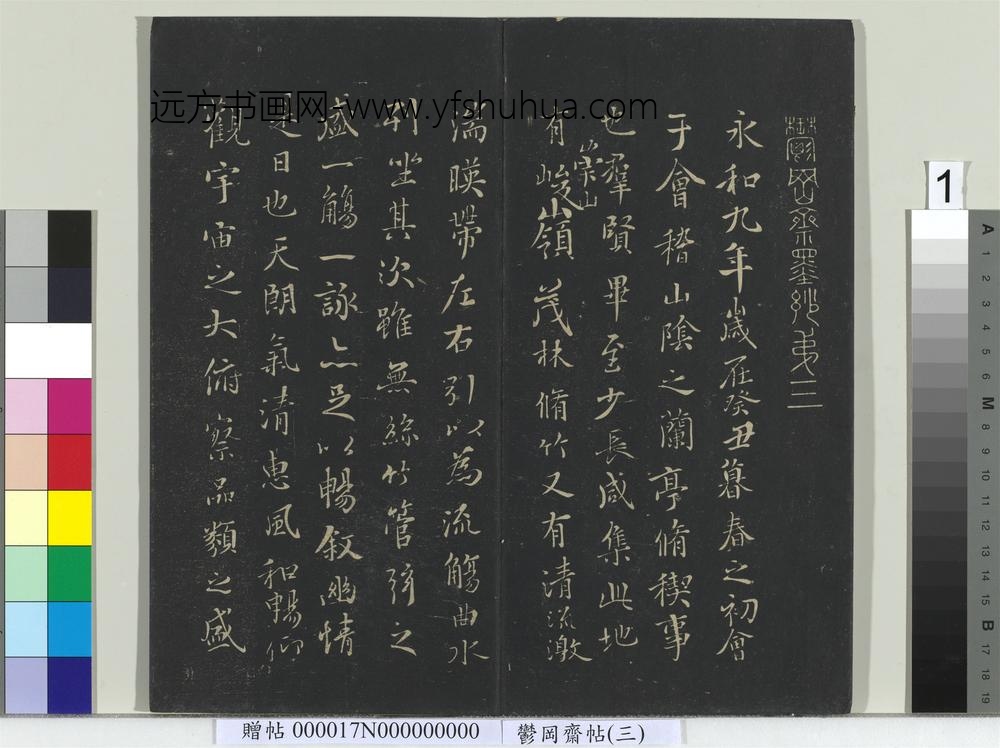 鬱岡齋墨妙第三
永和九年歲在癸丑暮春之初會
于會稽山陰之蘭亭脩稧事
也羣賢畢至少長咸集此地
有崇山峻領茂林脩竹又有清流激
湍暎帶左右引以為流觴曲水
列坐其次雖無絲竹管弦之
盛一觴一詠亦足以暢叙幽情
是日也天朗氣清惠風和暢仰
觀宇宙之大俯察品類之盛
远方书画网-www.yfshuhua.com
1
A 1 2 3 4 5 6 M 8 9 10 11 12 13 14 15 B 17 18 19
贈帖 000017N000000000
鬱岡齋帖(三)